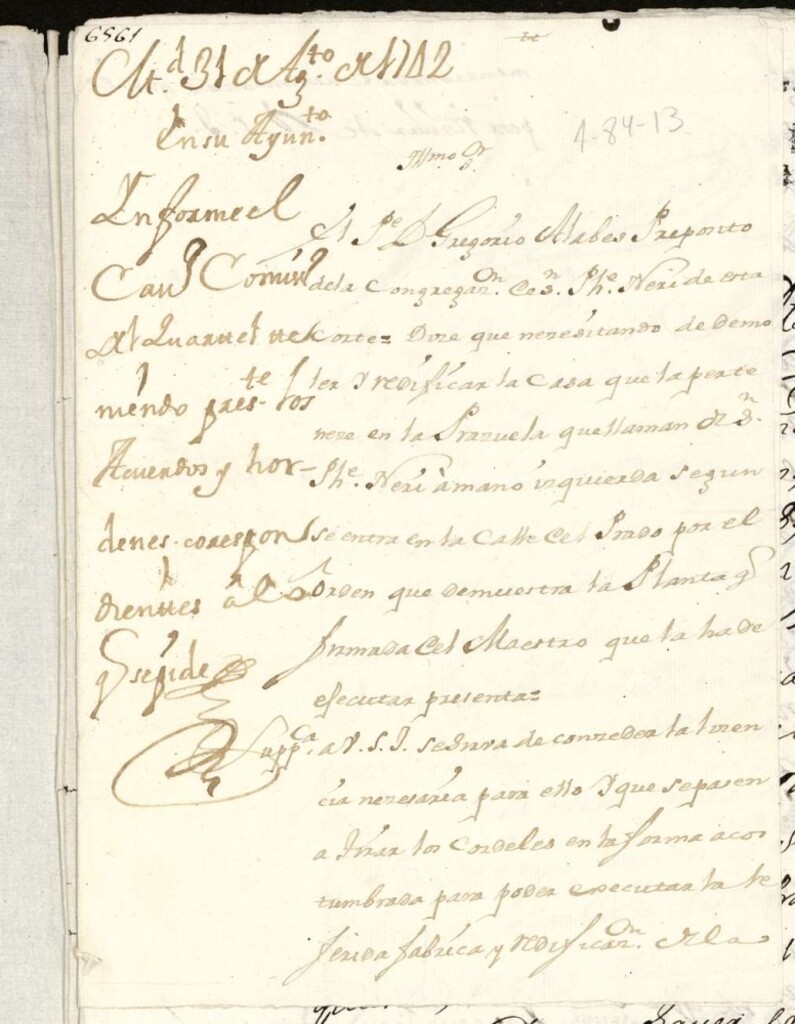 6561
M.d 31 de Ag.to de 1742
En su Ayun.to
1-84-13
Illmo S.or
Ynforme el
Cav.o Comis.o
del Quartel the
niendo pres.te los
Acuerdos y hor-
denes corespon
dienttes â lo
q se pide
El P.e D Gregorio Alabes Preposito
de la Congregaz.on de S.n Phe. Neri de esta
Corte= Dize que nezesitando de demo
ler Y redificar la Casa que la perte
neze en la Plazuela que llaman de S.n
Phe. Neri à mano izquierda segun
se entra en la Calle del Prado por el
Orden que demuestra la Planta q
firmada del Maestro que la ha de
ejecutar presenta=
Supp.ca a V. S. I. se sirva de conzeder la lizen
cia nezesaria para ello Y que se pasen
a tirar los Cordeles en la forma acos
tumbrada para poder executar la re
ferida fabrica y redificaz.on de la